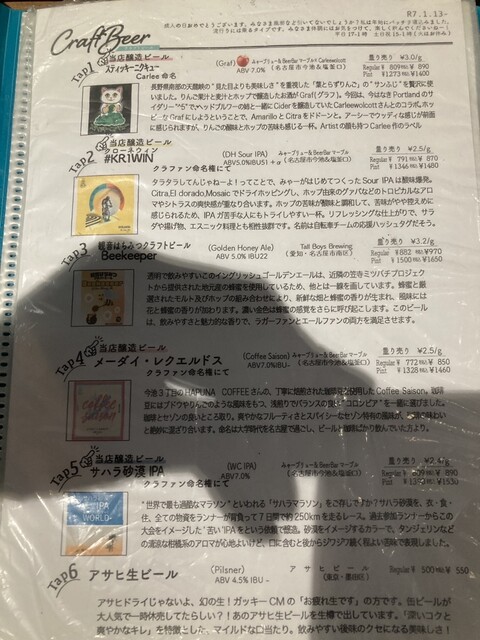 R7.1.13~
Craft Beer
成人の日おめでとうございます。みなさま風邪などひいてないでしょうか？私は年明にバッチリ寝込みました。
平日17-1時　土日祝15-1時（火はお休み）
Tap1
当店醸造ビール
スティッキーニクキュー
Carlee命名
(Graf)
ABV 7.0%
みャーブリュー&BeerBarマーブル
(名古屋市今池&塩釜口)
量り売り ¥2.6/g
Regular ¥ 809 ¥ 890
Pint ¥1273 ¥1400
長野県南部の天龍峡の“見た目よりも美味しさ”を重視した「葉とらずりんご」の“サンふじ”を贅沢に使
いました。りんご果汁と麦汁とホップで醸造したお酒がGraf(グラフ)。今回は、今はなきPortlandのサ
イダリー
ピーなGrafにしようということで、AmarilloとCitraをドドーンと。アーシーでウッディな感じが前面
に感じられますが、りんごの酸味とホップの苦味も感じる一杯。Artistの顔も持つCarlee作のラベル
Tap2
当店醸造ビール
クローネウィン
#KR1WIN
クラファン命名権にて
(DH Sour IPA)
ABV5.0%IBU51+α
みャーブリュー&BeerBarマーブル
(名古屋市今池&塩釜口)
量り売り ¥2.5/g
Regular ¥ 791 ¥ 870
Pint ¥ 1346 ¥ 1480
タラタラしてんじゃねーよ！ってことで、みゃーがはじめてつくったSour IPAは酸味爆発。
Citra,El dorado,Mosaicでドライホッピングし、ホップ由来のグァバなどのトロピカルなアロ
マやシトラスの爽快感が重なり合います。ホップの苦味が酸味と調和して、苦味がやや控えめに
感じられるため、IPAが苦手な人にもトライしやすい一杯。リフレッシングな仕上がりで、サラ
ダや揚げ物、エスニック料理とも相性抜群です。名前は自転車チームの応援ハッシュタグだそう。
Tap3
観音はちみつクラフトビール
Beekeeper
(Golden Honey Ale)
ABV 5.0% IBU22
Tall Boys Brewing.
(愛知・名古屋市南区)
量り売り ¥3.2/g
Regular ¥882 ¥970
Pint ¥ 1500 ¥1650
透明で飲みやすいこのイングリッシュゴールデンエールは、近隣の笠寺ミツバチプロジェク
トから提供された地元産の蜂蜜を使用しているため、他とは一線を画しています。蜂蜜と厳
選されたモルト及びホップの組み合わせにより、新鮮な畑と蜂蜜の香りが生まれ、風味には
花と蜂蜜の香りが加わります。濃い金色は蜂蜜の感覚をさらに呼び起こします。このビール
は、飲みやすさと魅力的な香りで、ラガーファンとエールファンの両方を満足させます。
Tap4
当店醸造ビール
メーダイ・レクエルドス
クラファン命名権にて
(Coffee Saison)
ABV 5.0%
みャーブリュー&BeerBarマーブル
(名古屋市今池&塩釜口)
量り売り ¥2.5/g
Regular ¥ 772 ¥ 850
Pint ¥ 1328 ¥1460
今池3丁目のHAPUNA COFFEEさんの、丁寧に焙煎された珈琲豆を使用したCoffee Saison。珈琲
豆にはブドウやりんごのような風味をもつ、浅煎りでバランスの良く“コロンビア”を一緒に選びました。
珈琲とセゾンの良いところ取り。爽やかなフルーティさとスパイシーなセゾン特有の風味が、珈琲の味わい
と絶妙に混ざり合います。命名は大学時代を名古屋で過ごし、ビールと珈琲ばかり飲んでいた方より。
Tap5
当店醸造ビール
サハラ砂漠IPA
クラファン命名権にて
(WC IPA)
みャーブリュー&BeerBarマーブル
(名古屋市今池&塩釜口)
“世界で最も過酷なマラソン”といわれる「サハラマラソン」をご存じですか？サハラ砂漠を、衣・食・
住、全ての物資をランナーが背負って7日間で約250kmを走るレース。過去参加ランナーからこの
大会をイメージした“苦いIPAを”という依頼で醸造。砂漠をイメージするカラーで、タンジェリンなど
の柑橘系のアロマが心地よいけど、口に含むと後からジワジワ続く程よい苦味で表現しました。
Tap6
アサヒ生ビール
(Pilsner)
ABV 4.5% IBU -
アサヒビール
(東京・墨田区)
Regular ¥ 500 ¥ 550
アサヒドライじゃないよ、幻の生！ガッキーCMの「お疲れ生です」の方です。缶ビールが
大人気で一時休売してたらしい？！あのアサヒ生ビールを生樽で出しています。「深いコクと
爽やかなキレ」を特徴とした、マイルドな口当たり。飲みやすい後味のキレがクセになる美味しさ！